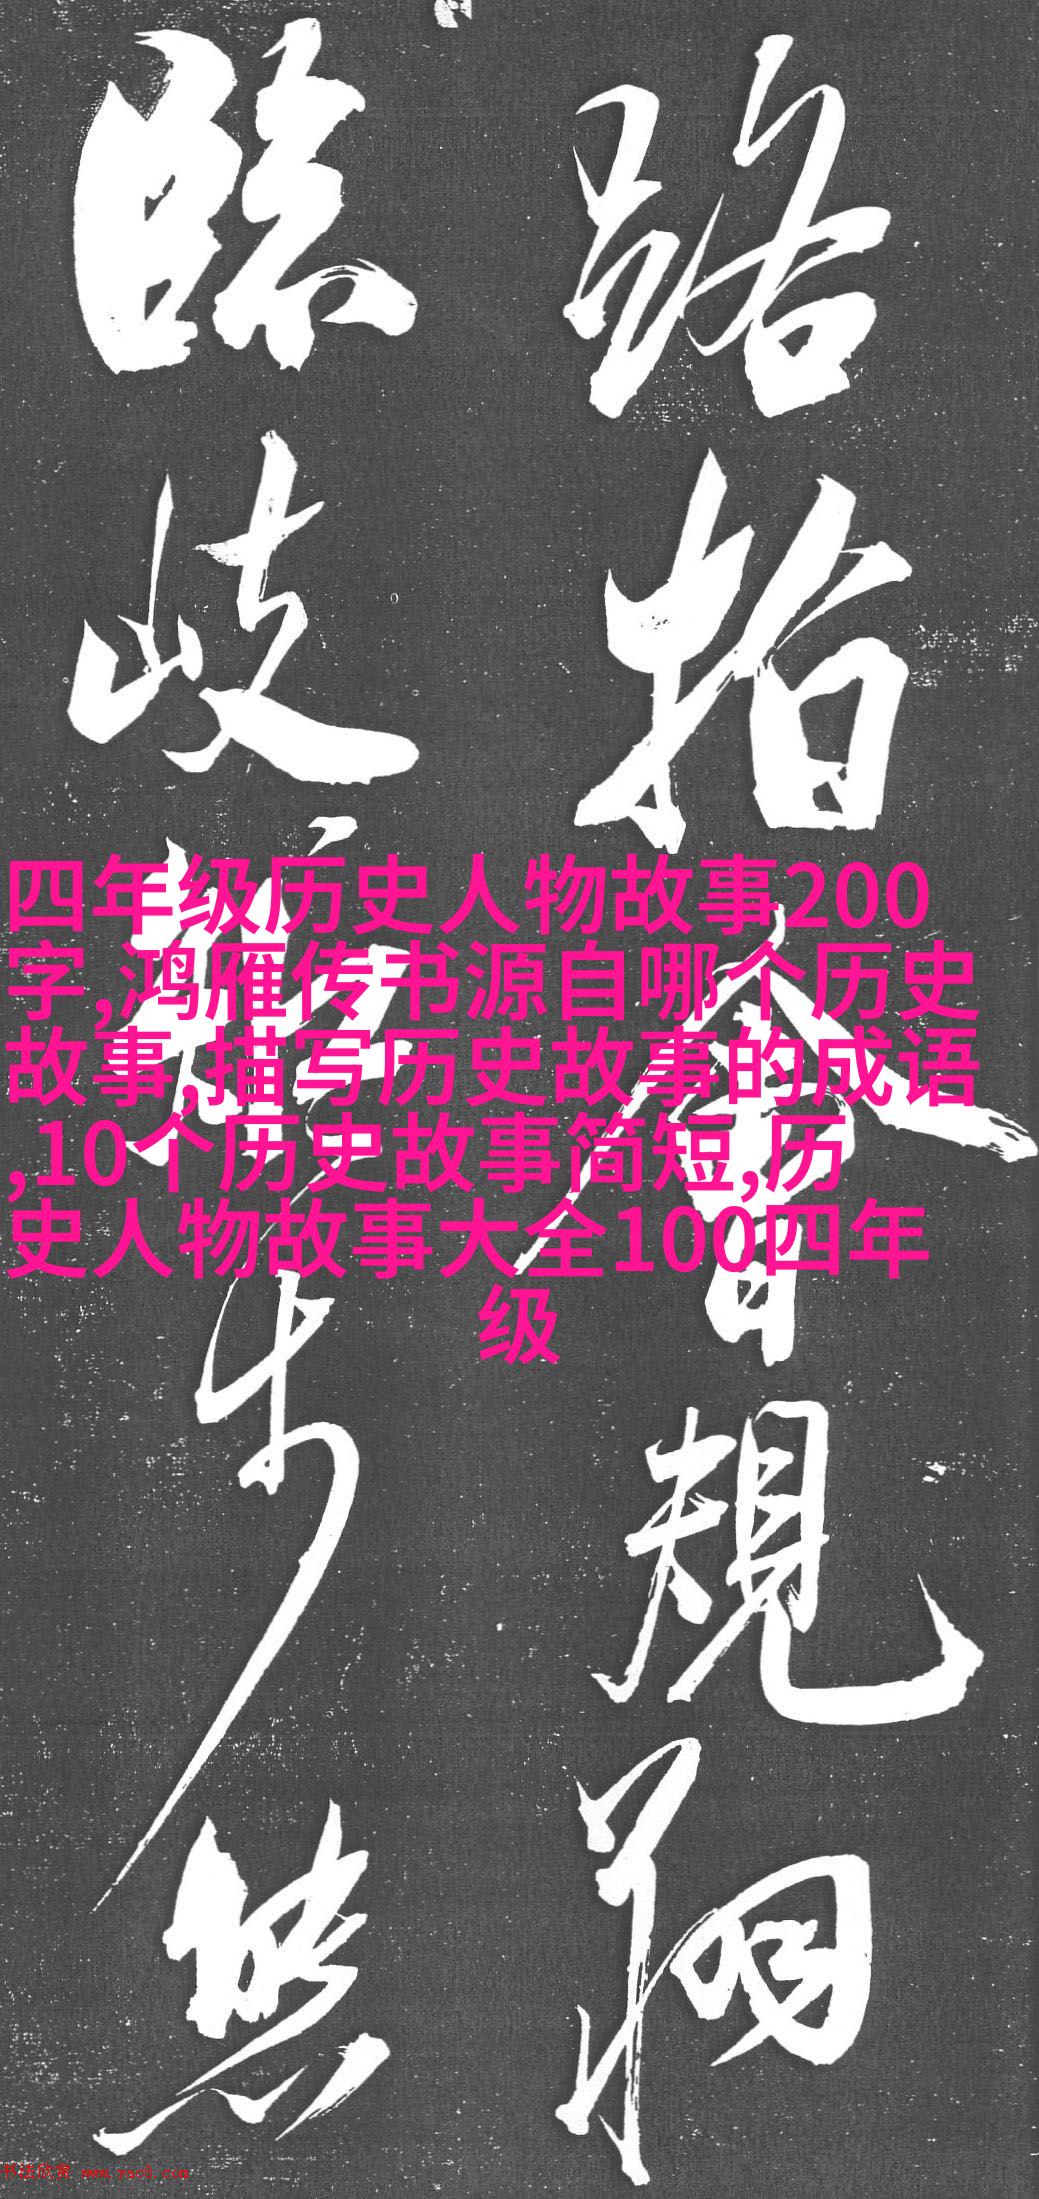 路指會規翔
臨歧步
四年级历史人物故事200
字,鸿雁传书源自哪个历史
故事,描写历史故事的成语
,10个历史故事简短,历
史人物故事大全100四年
级
书法欣赏 www.yac8.com